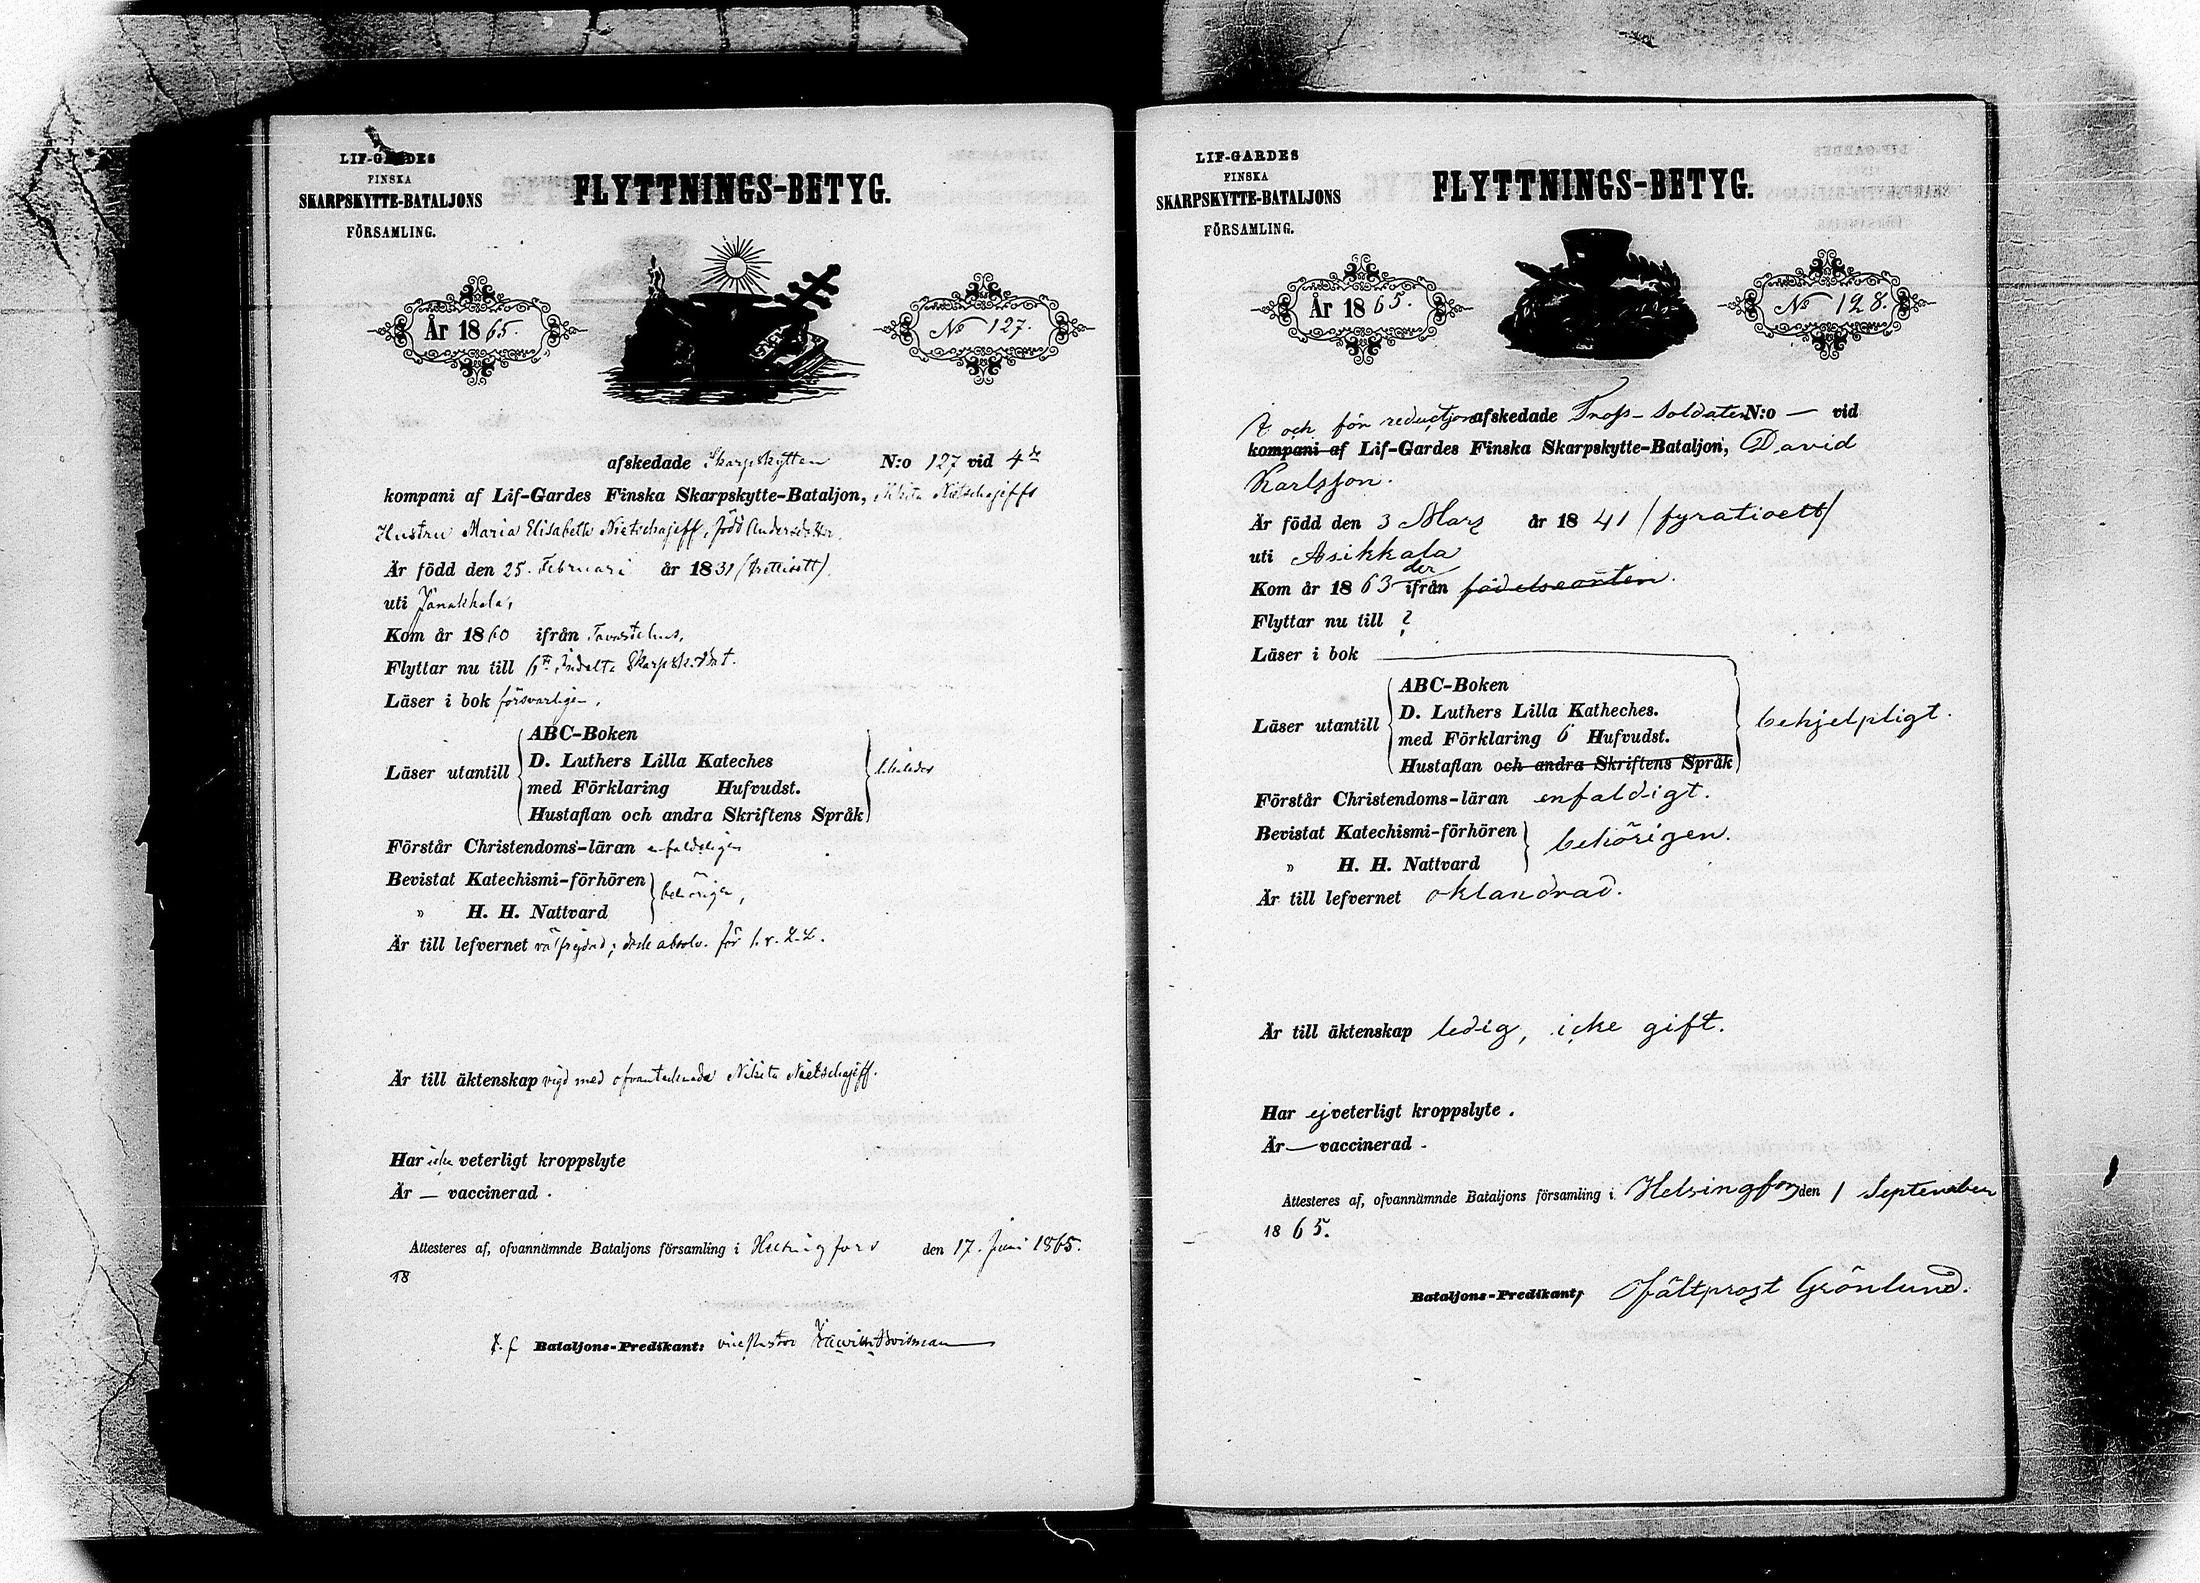 LIF-GARDES
FINSKA
SKARPSKYTTE-BATALJONS
FÖRSAMLING.
FLYTTNINGS-BETYG.
År 1865.
No 127.
afskedade Skarpskytten N:o 127 vid 4de
kompani af Lif-Gardes Finska Skarpskytte-Bataljon, Nikita Nietschajeffs
Hustru Maria Elisabeth Nietschajeff, född Andersdotter.
Är född den 25. Februari år 1831 (trettioett).
uti Janakkala,
Kom år 1860 ifrån Tavastehus,
Flyttar nu till 6te Indelta Skarpsk. Bat.
Läser i bok försvarligen,
Läser utantill
ABC-Boken
D. Luthers Lilla Kateches
med Förklaring Hufvudst.
Hustaflan och andra Skriftens Språk
Förstår Christendoms-läran enfaldeligen
Bevistat Katechismi-förhören
" H. H. Nattvard
behörigen,
Är till lefvernet välfrejdad; dock absolv. för
Är till äktenskap vigd med ofvantecknade Nikita Nietschajeff.
Har icke veterligt kroppslyte
Är — vaccinerad.
Attesteras af, ofvannämnde Bataljons församling i Helsingfors den 17. Juni 1865.
18
T. f Bataljons-Predikant:
LIF-GARDES
FINSKA
SKARPSKYTTE-BATALJONS
FÖRSAMLING.
FLYTTNINGS-BETYG.
År 1865.
No 128.
och för reduction afskedade Tross-Soldaten N:o — vid
kompani af Lif-Gardes Finska Skarpskytte-Bataljon, David
Karlsson.
Är född den 3 Mars år 1841 /fyratioett/
uti Asikkala
Kom år 1863 ifrån der födelseorten.
Flyttar nu till ?
Läser i bok
Läser utantill
ABC-Boken
D. Luthers Lilla Katheches.
med Förklaring 6 Hufvudst.
Hustaflan och andra Skriftens Språk
behjelpligt.
Förstår Christendoms-läran enfaldigt.
Bevistat Katechismi-förhören
" H. H. Nattvard
behörigen.
Är till lefvernet oklandrad.
Är till äktenskap ledig, icke gift.
Har ej veterligt kroppslyte.
Är — vaccinerad.
Attesteres af, ofvannämnde Bataljons församling i Helsingfors den 1 September
1865.
Bataljons-Predikant, Fältprost Grönlund.